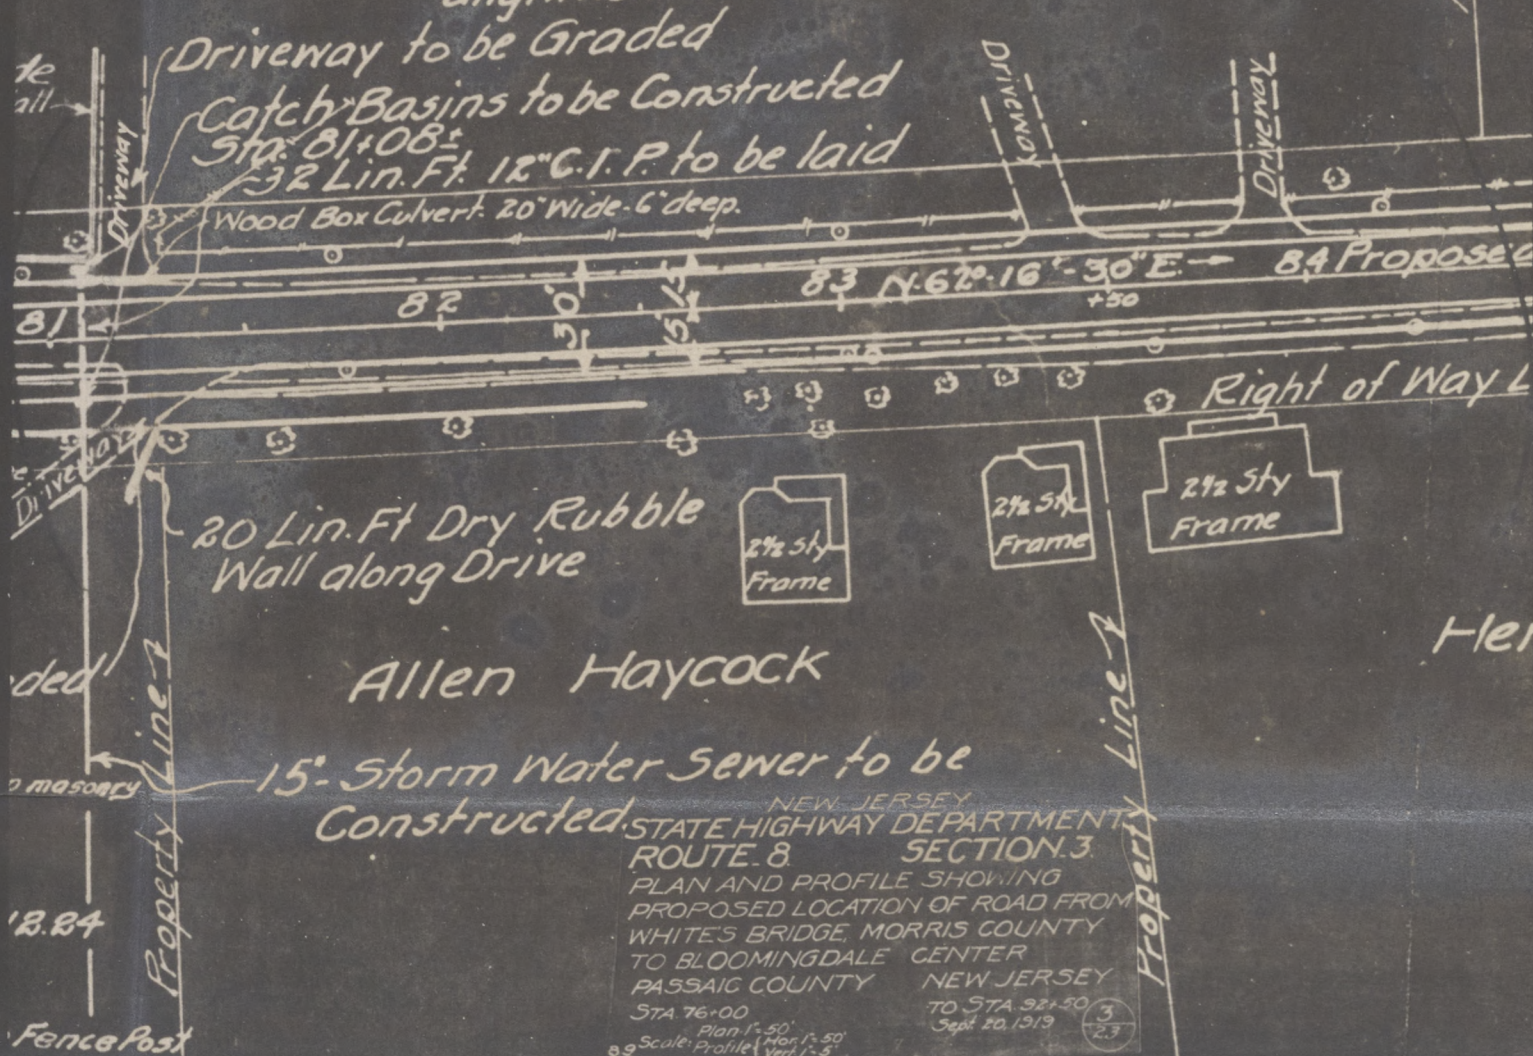 Driveway to be Graded
Catch Basins to be Constructed
Sta. 81+08±
32 Lin. Ft. 12" C.I.P. to be laid
Wood Box Culvert 20" Wide-6" deep.
Driveway
Driveway
Driveway
81
82
30'
15'
15'
83
N-62°-16'-30"E
+50
84
Proposed
Right of Way L
Driveway
20 Lin. Ft Dry Rubble
Wall along Drive
2½ Sty
Frame
2½ Sty
Frame
2½ Sty
Frame
Allen Haycock
Hei
ded
15"-Storm Water Sewer to be
Constructed.
masonry
Property Line
Property Line
12.24
Fence Post
NEW JERSEY
STATE HIGHWAY DEPARTMENT
ROUTE.8. SECTION.3.
PLAN AND PROFILE SHOWING
PROPOSED LOCATION OF ROAD FROM
WHITES BRIDGE, MORRIS COUNTY
TO BLOOMINGDALE CENTER
PASSAIC COUNTY NEW JERSEY
STA. 76+00 TO STA. 92+50
Sept. 20, 1919
3
23
Scale: Plan-1"=50'
Profile { Hor. 1"=50'
Vert. 1"=5'
89